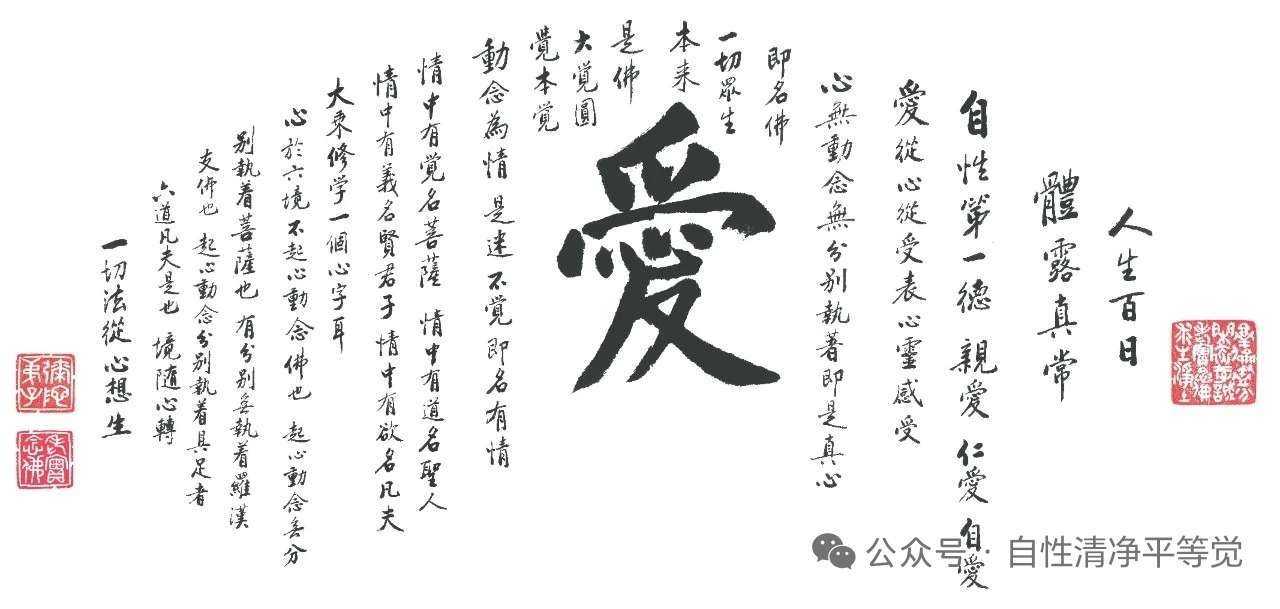 人生百日
體露真常
自性第一德 親愛 仁愛 自愛
愛從心從受表心靈感受
心無動念無分別執著即是真心
即名佛
一切眾生
本来
是佛
大覚圓
覺本覚
愛
動念為情 是迷不覚即名有情
情中有覚名菩薩 情中有道名聖人
情中有義名賢君子 情中有欲名凡夫
大乘修学一個心字耳
心於六境不起心動念佛也 起心動念无分
别執着菩薩也 有分别无執着羅漢
支佛也 起心動念分别執着具足者
六道凡夫是也 境隨心轉
一切法從心想生
彌陀弟子
念佛
公众号 · 自性清净平等觉